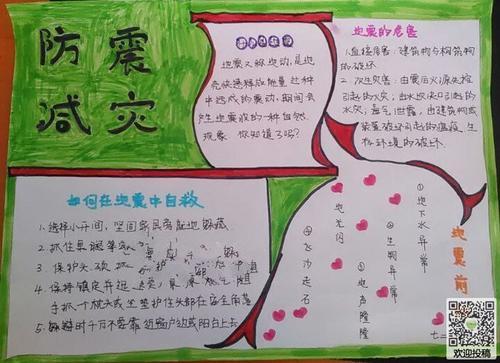 防震
减灾
地震又称地动,是地
壳快速释放能量过程
中造成的震动,期间会
产生地震波的一种自然
现象,你知道了吗?
地震的危害
1.直接危害:建筑物与构筑物
的破坏
2.次生灾害:由震后火源失控
引起的火灾,
水灾,毒气泄露,由建筑物或
装置破坏引起的瘟疫,生
存环境的破坏.
如何在地震中自救
1.选择小开间,坚固家具旁就地躲藏.
2.抓住
3.保护头颈,抓
4.保持镇定并迅
手抓一个枕头或坐垫护住头部在安全角落
5.躲避时千万不要靠近窗户边或阳台上去
地震前
①地下水异常
②生物异常
③地声隆隆
地光闪闪
飞沙走石
七二
欢迎投稿